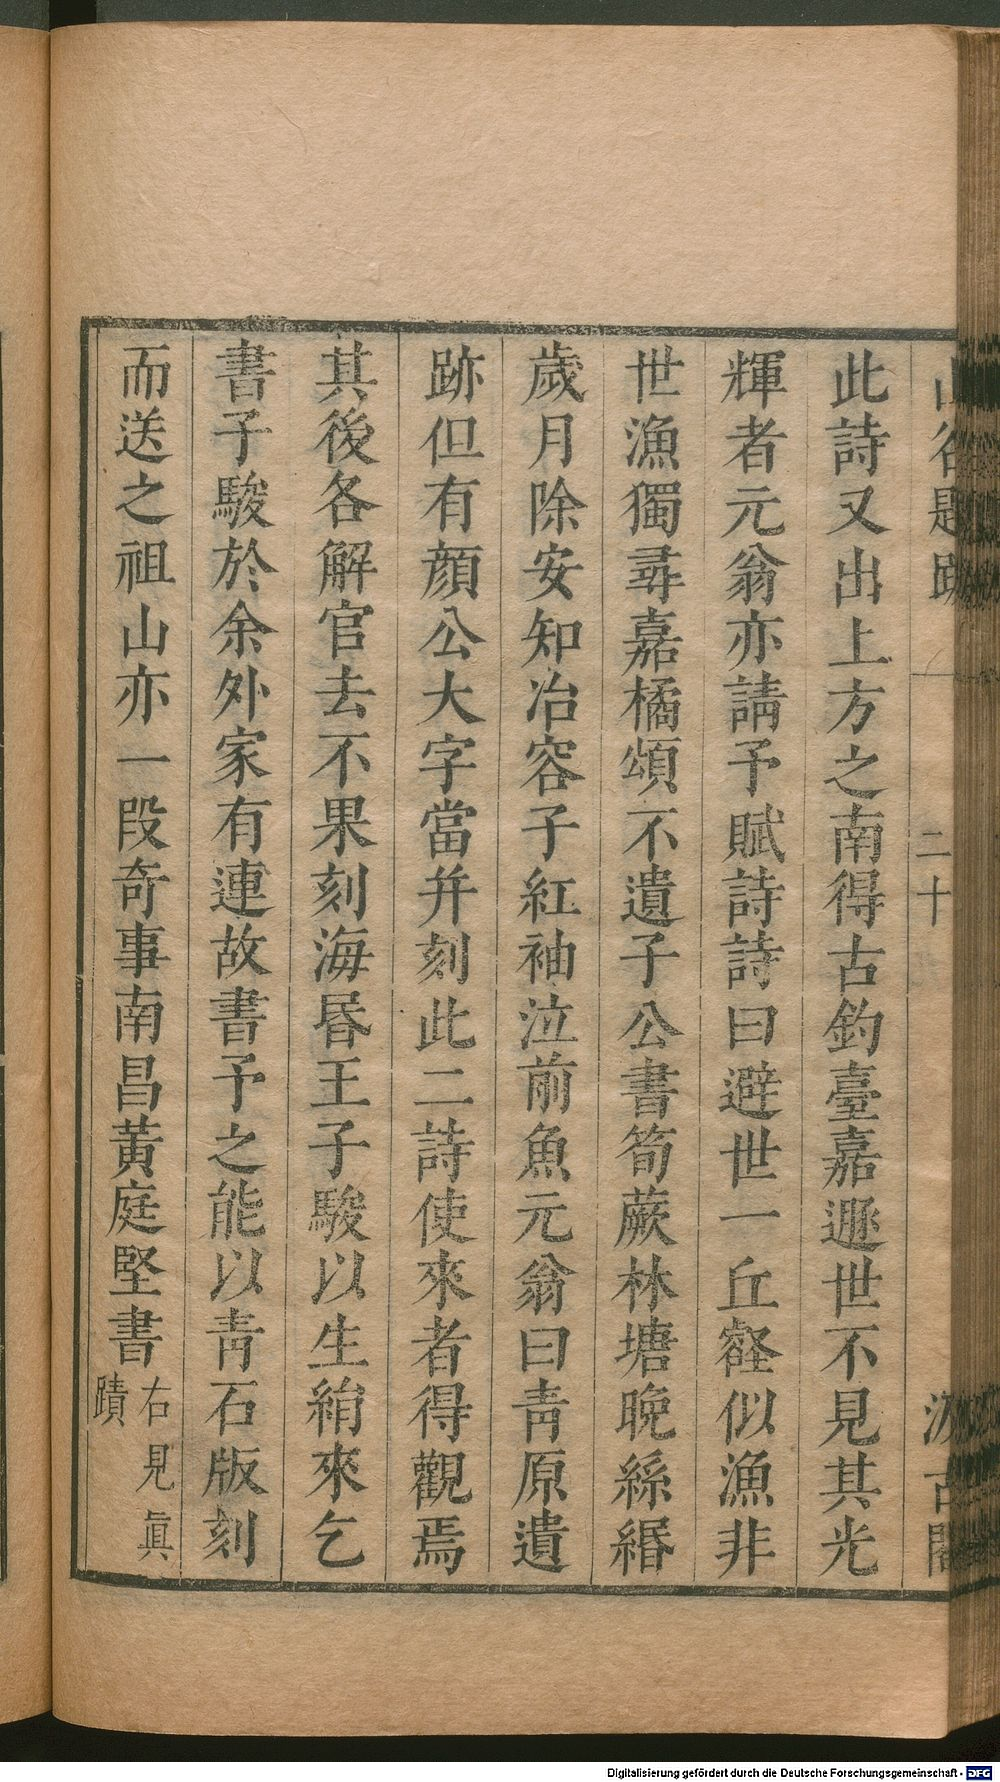 山谷題跋
二十
汲古閣
此詩又出上方之南得古釣臺嘉遯世不見其光
輝者元翁亦請予賦詩詩曰避世一丘壑似漁非
世漁獨尋嘉橘頌不遺子公書筍蕨林塘晚絲緡
歲月除安知冶容子紅袖泣前魚元翁曰青原遺
跡但有顏公大字當并刻此二詩使來者得觀焉
其後各解官去不果刻海昬王子駿以生絹來乞
書子駿於余外家有連故書予之能以青石版刻
而送之祖山亦一段奇事南昌黃庭堅書
右見眞
蹟
Digitalisierung gefördert durch die Deutsche Forschungsgemeinschaft - DFG